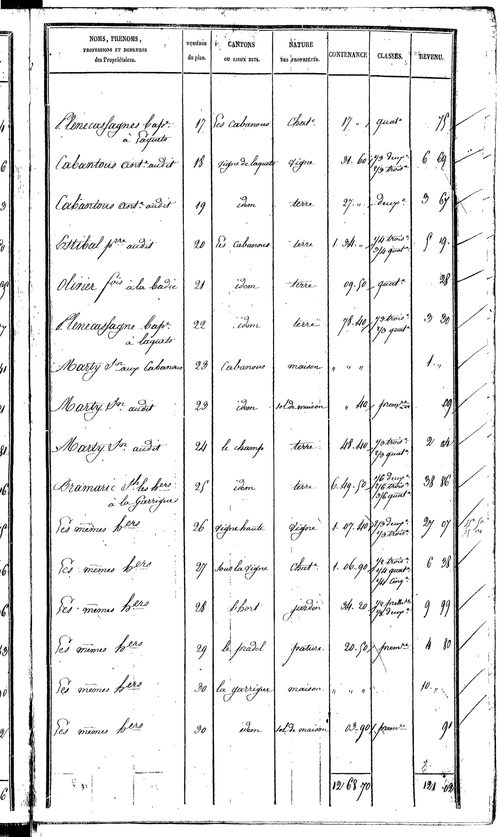 NOMS, PRENOMS, PROFESSIONS ET DEMEURES des Propriétaires. NUMÉROS du plan. CANTONS OU LIEUX DITS. NATURE DES PROPRIÉTÉS. CONTENANCE CLASSES. REVENU.
Plenecassagnes Bapte à Laquets 17 Les Cabanous Chate 17 „ quate 75
Cabantous Ante audit 18 vigne de laquets vigne 31. 60 1/3 deuxe 2/3 troise 6 69
Cabantous Ante audit 19 idem terre 27. „ deuxe 3 67
Estibal prre audit 20 Les Cabanous terre 1. 34. „ 1/4 troise 3/4 quate 5 19
Olivier fois à la badie 21 idem terre 09. 50 quate 28
Plenecassagne Bapte à laquets 22 idem terre 78. 40 1/3 troise 2/3 quate 3 30
Marty Jn aux Cabanous 23 Cabanous maison „ „ „ 1. „
Marty Jn audit 23 idem sol de maison „ 40 premre 09
Marty Jn audit 24 le champ terre 48. 40 1/3 troise 2/3 quate 2 04
Bramarie Jh les hers à la Garrigue 25 idem terre 6. 49. 50 1/6 deuxe 2/6 troise 3/6 quate 38 86
Les mêmes hers 26 vigne haute vigne 1. 07. 40 2/3 deuxe 1/3 troise 27 07
Les mêmes hers 27 sous la vigne Chate 1. 06. 90 1/2 troise 1/4 quate 1/4 cinqe 6 38
Les mêmes hers 28 l'hort jardin 34. 20 1/2 premre 1/2 deuxe 9 99
Les mêmes hers 29 le pradel pature 20. 50 premre 4 80
Les mêmes hers 30 la garrigue maison „ „ „ 10. „
Les mêmes hers 30 idem sol de maison 03. 90 premre 91
12 68. 70 121. 02